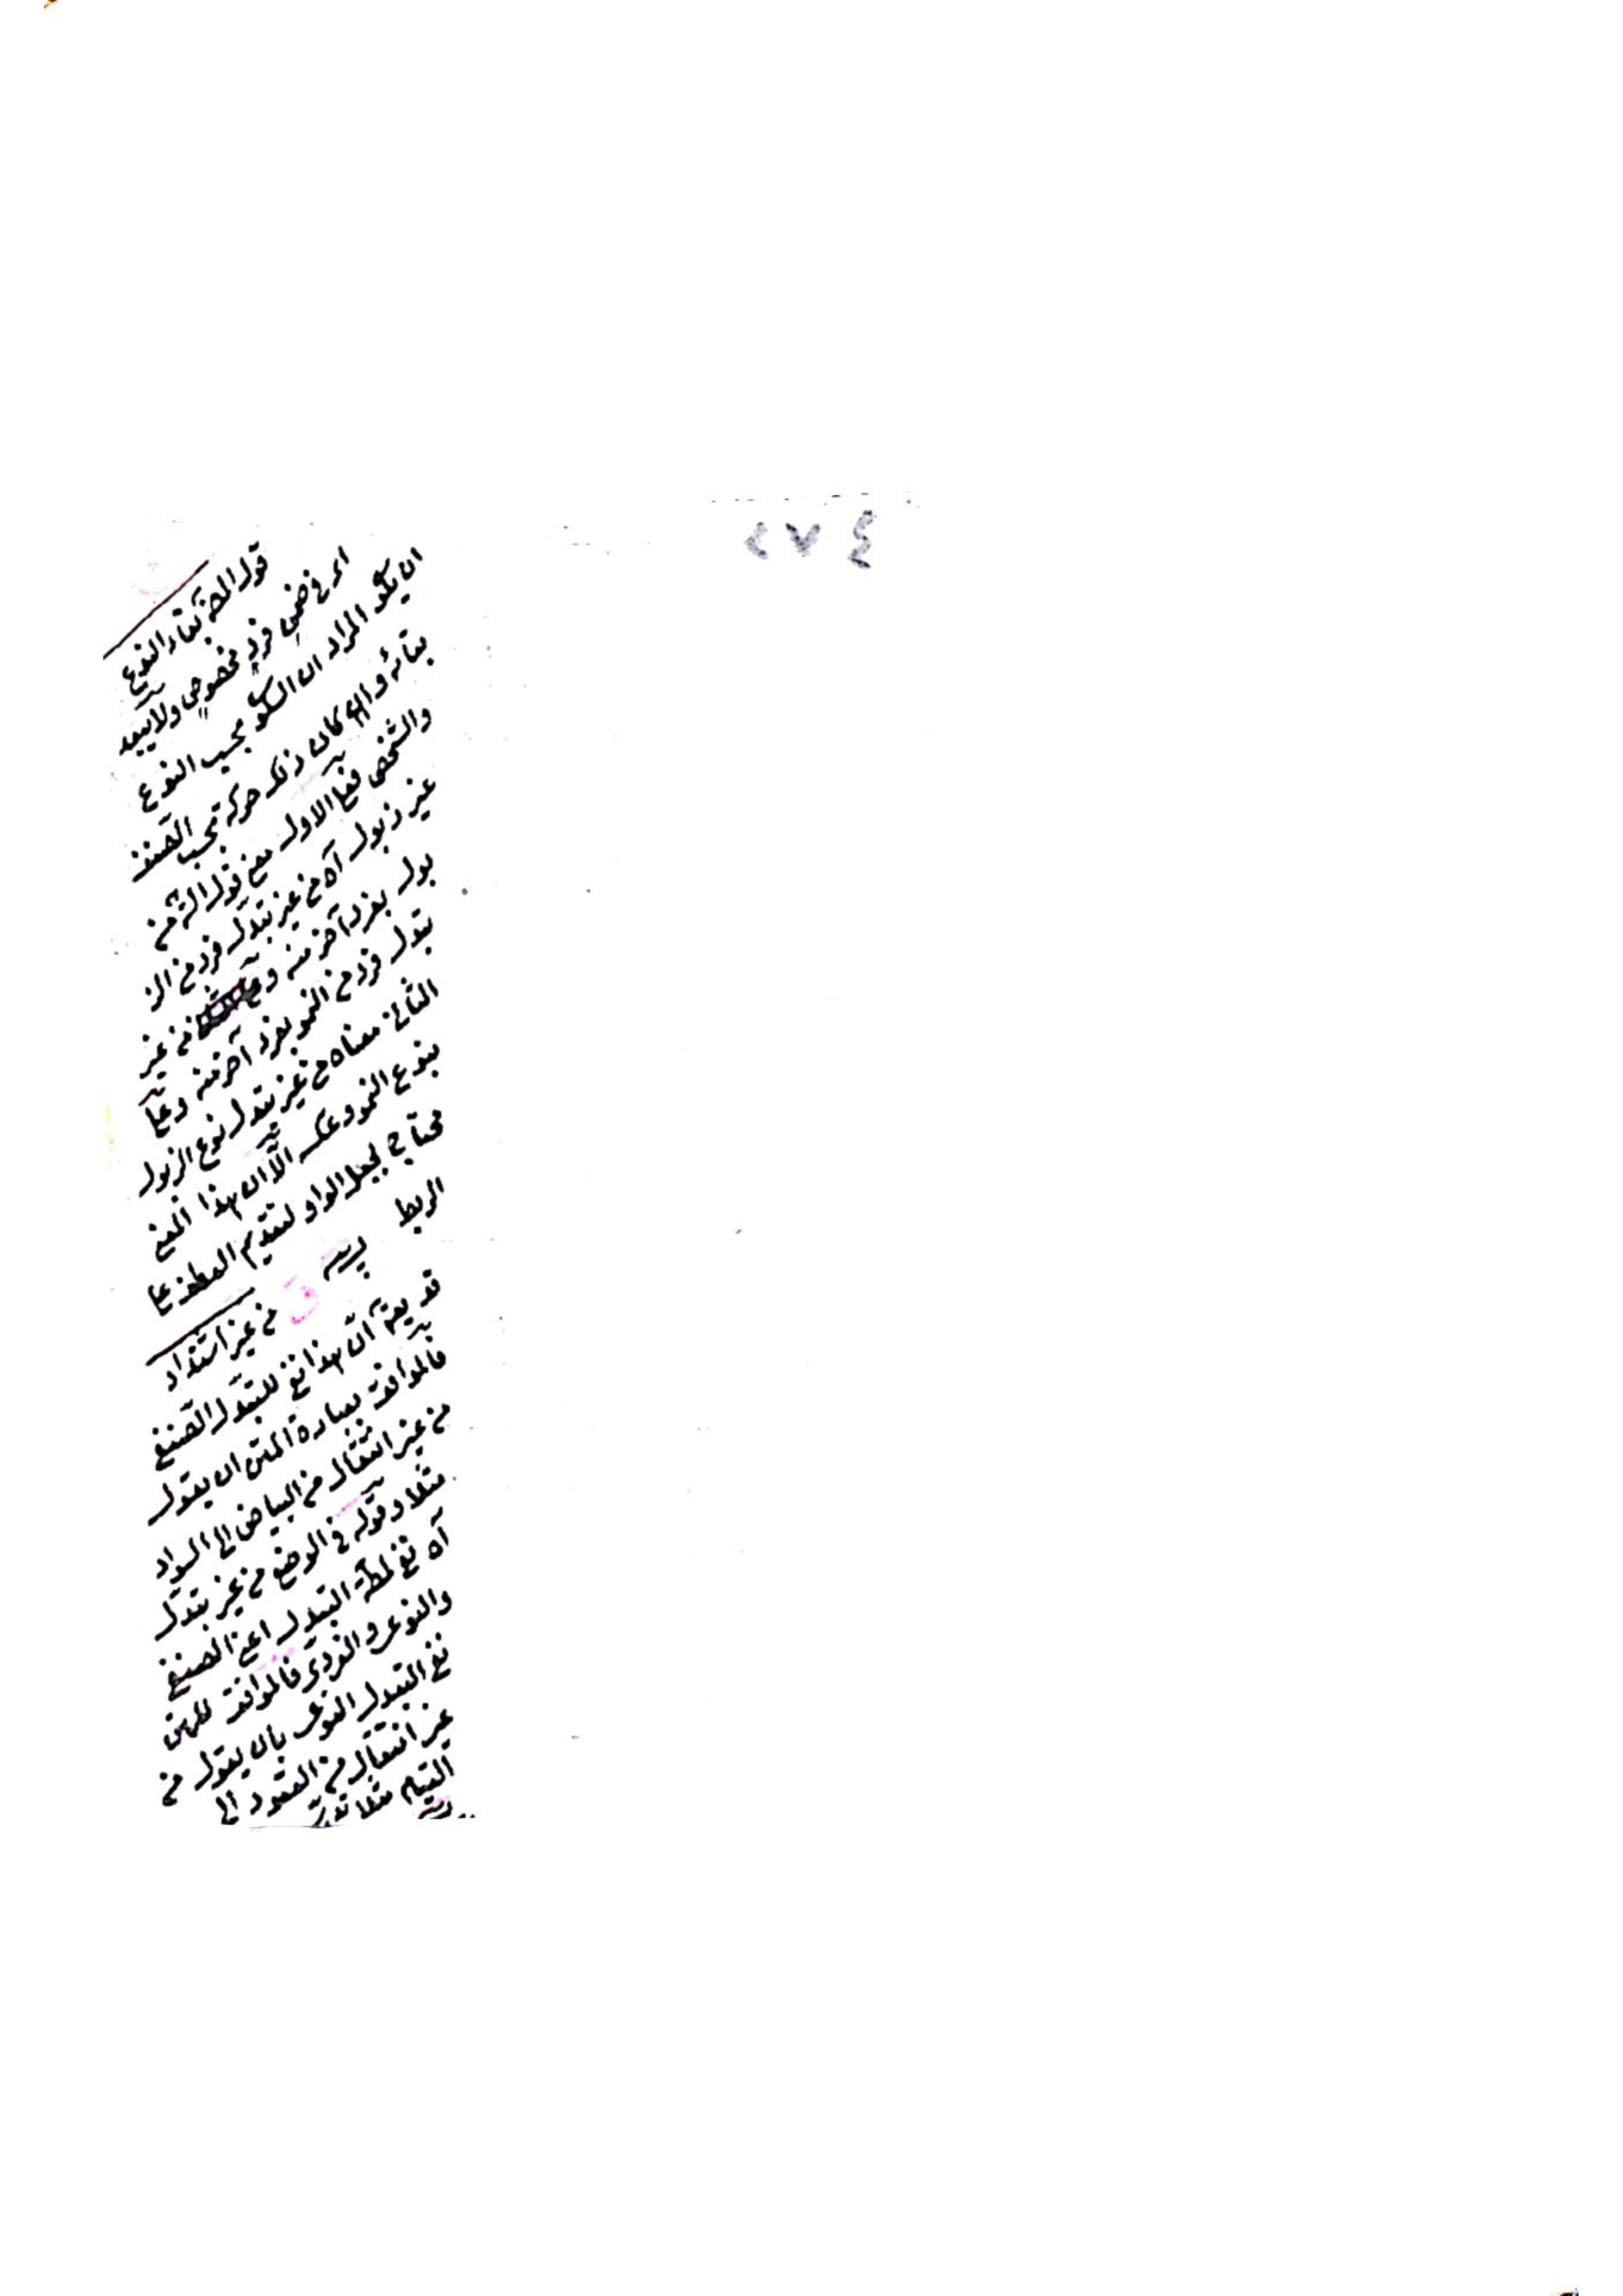 ٤٧٤
قول المص بقاء النوع
اى في ضمن فرد مخصوص ولا يبعد
ان يكو المراد ان السكو بحسب النوع
بقائه وان كان ذلك حركة بحسب الصنف
والشخص فعلى الاول معنى قول الش من
غير ذبول آه من غير تبدل فرد من الذ
بول بفرد آخر منه و من غير
تبدل فرد من النمو بفرد آخر منه وعلى
الثانى معناه من غير تبدل نوع الذبول
بنوع النمو وعكسه الا ان هذا المعنى
محتاج لجعل الواو لتقديم العطف على
الربط
من غير اشتداد
قد يقال ان هذا نفي للتبدل الصنفى
فالموافق بعبارة المتن ان يقول
من غير انتقال من البياض الى السواد
مثلا وقوله في الوضع من غير تبدل
آه نفي لمطلق التبدل اعنى الصنفى
والنوعى والفردى فالموافق للمتن
نفي التبدل النوعى بان يقول من
غير انتقال من القعود الى
القيام مثلا